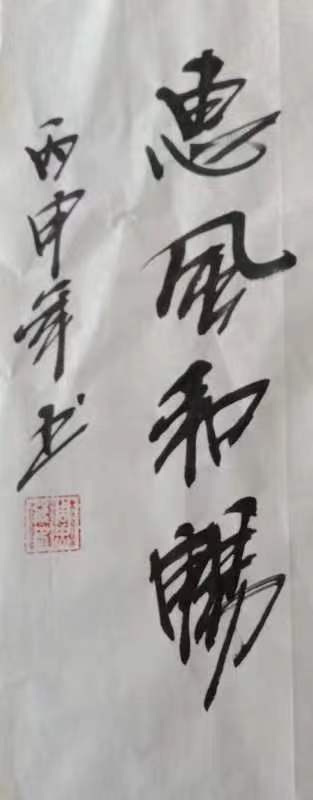 惠風和暢
丙申年书